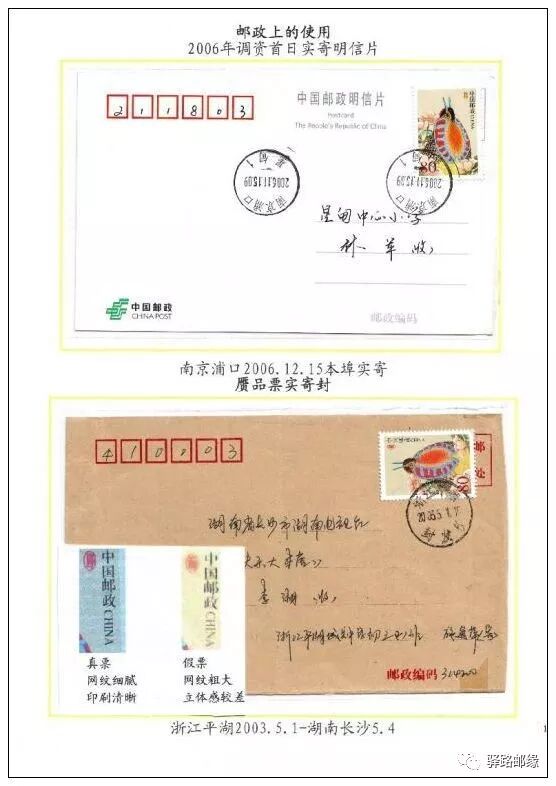 邮政上的使用
2006年调资首日实寄明信片
211803
中国邮政明信片
Postcard
The People's Republic of China
80
中国邮政CHINA
南京浦口
2006.11.15.09
南京浦口
2006.11.15.09
昆甸中心小学
林 草 收
中国邮政
CHINA POST
邮政编码
南京浦口2006.12.15本埠实寄
赝品票实寄封
410003
中国邮政CHINA
80
邮
处
湖南省长沙市湖南电视台
李 湘 收
浙江平湖
邮政编码 314200
中国邮政 CHINA
中国邮政 CHINA
真票
网纹细腻
印刷清晰
假票
网纹粗大
立体感较差
浙江平湖2003.5.1-湖南长沙5.4
1
驿路邮缘